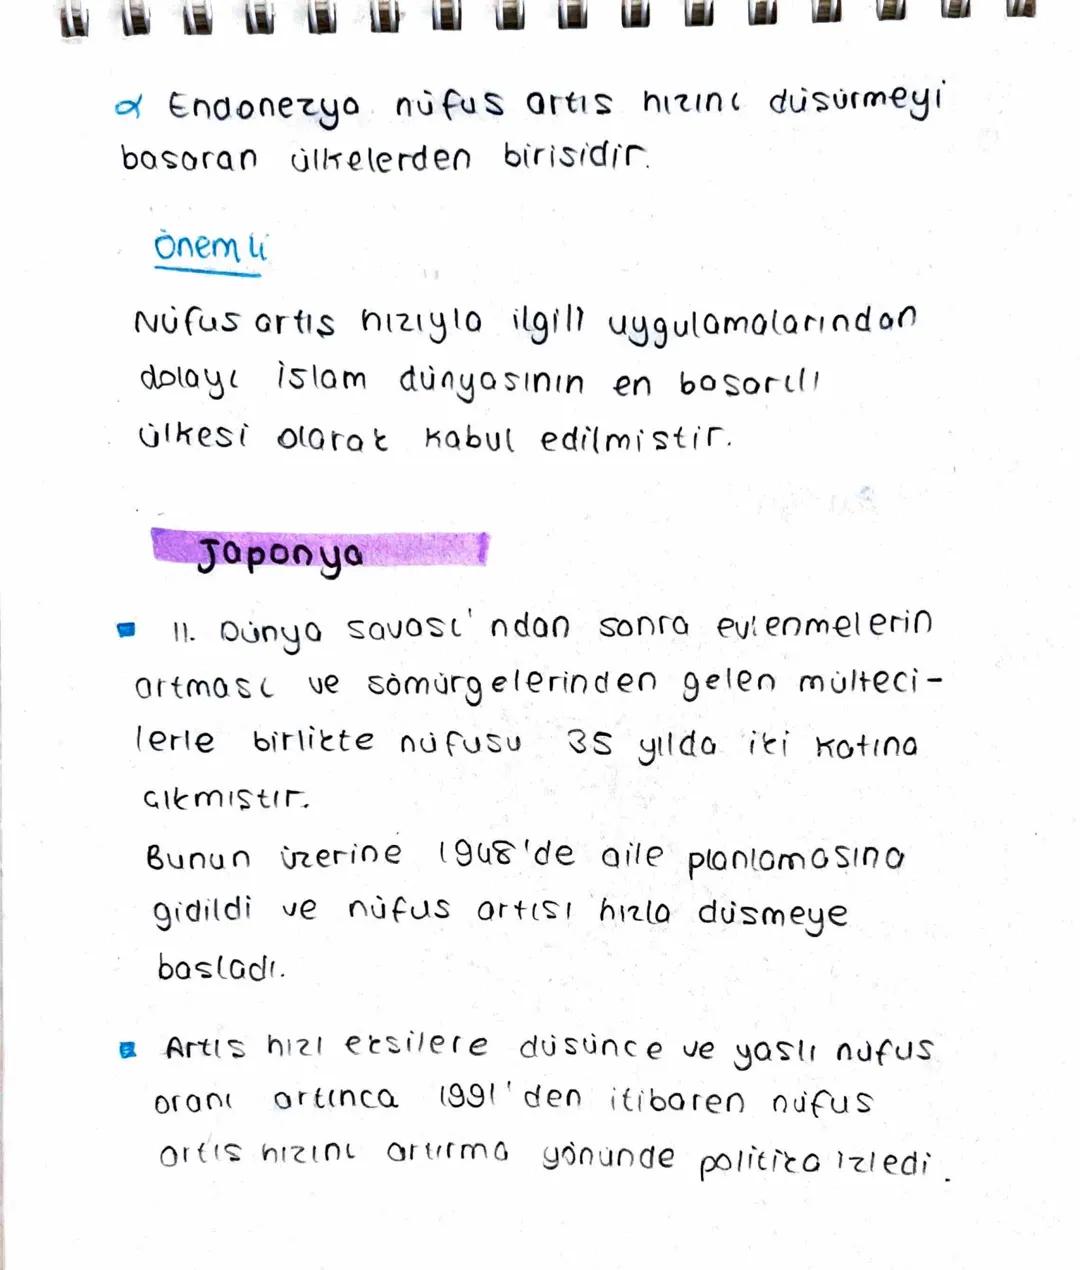 α Endonezya nüfus artıs hızını düsürmeyi
basaran ülkelerden birisidir.
Önemli
Nüfus artış hızıyla ilgili uygulamalarından
dolayı islam dünyasının en basarılı
ülkesi olarak kabul edilmistir.
Japonya
II. Dünya savası'ndan sonra evlenmelerin
artması ve sömürgelerinden gelen mülteci-
lerle birlikte nüfusu 35 yılda iki katına
çıkmıştır.
Bunun üzerine 1948'de aile planlamasına
gidildi ve nüfus artısı hızla düsmeye
basladı.
Artıs hızı eksilere düsünce ve yaslı nüfus
oranı artınca 1991'den itibaren nüfus
artıs hızını artırma yönünde politika izledi.